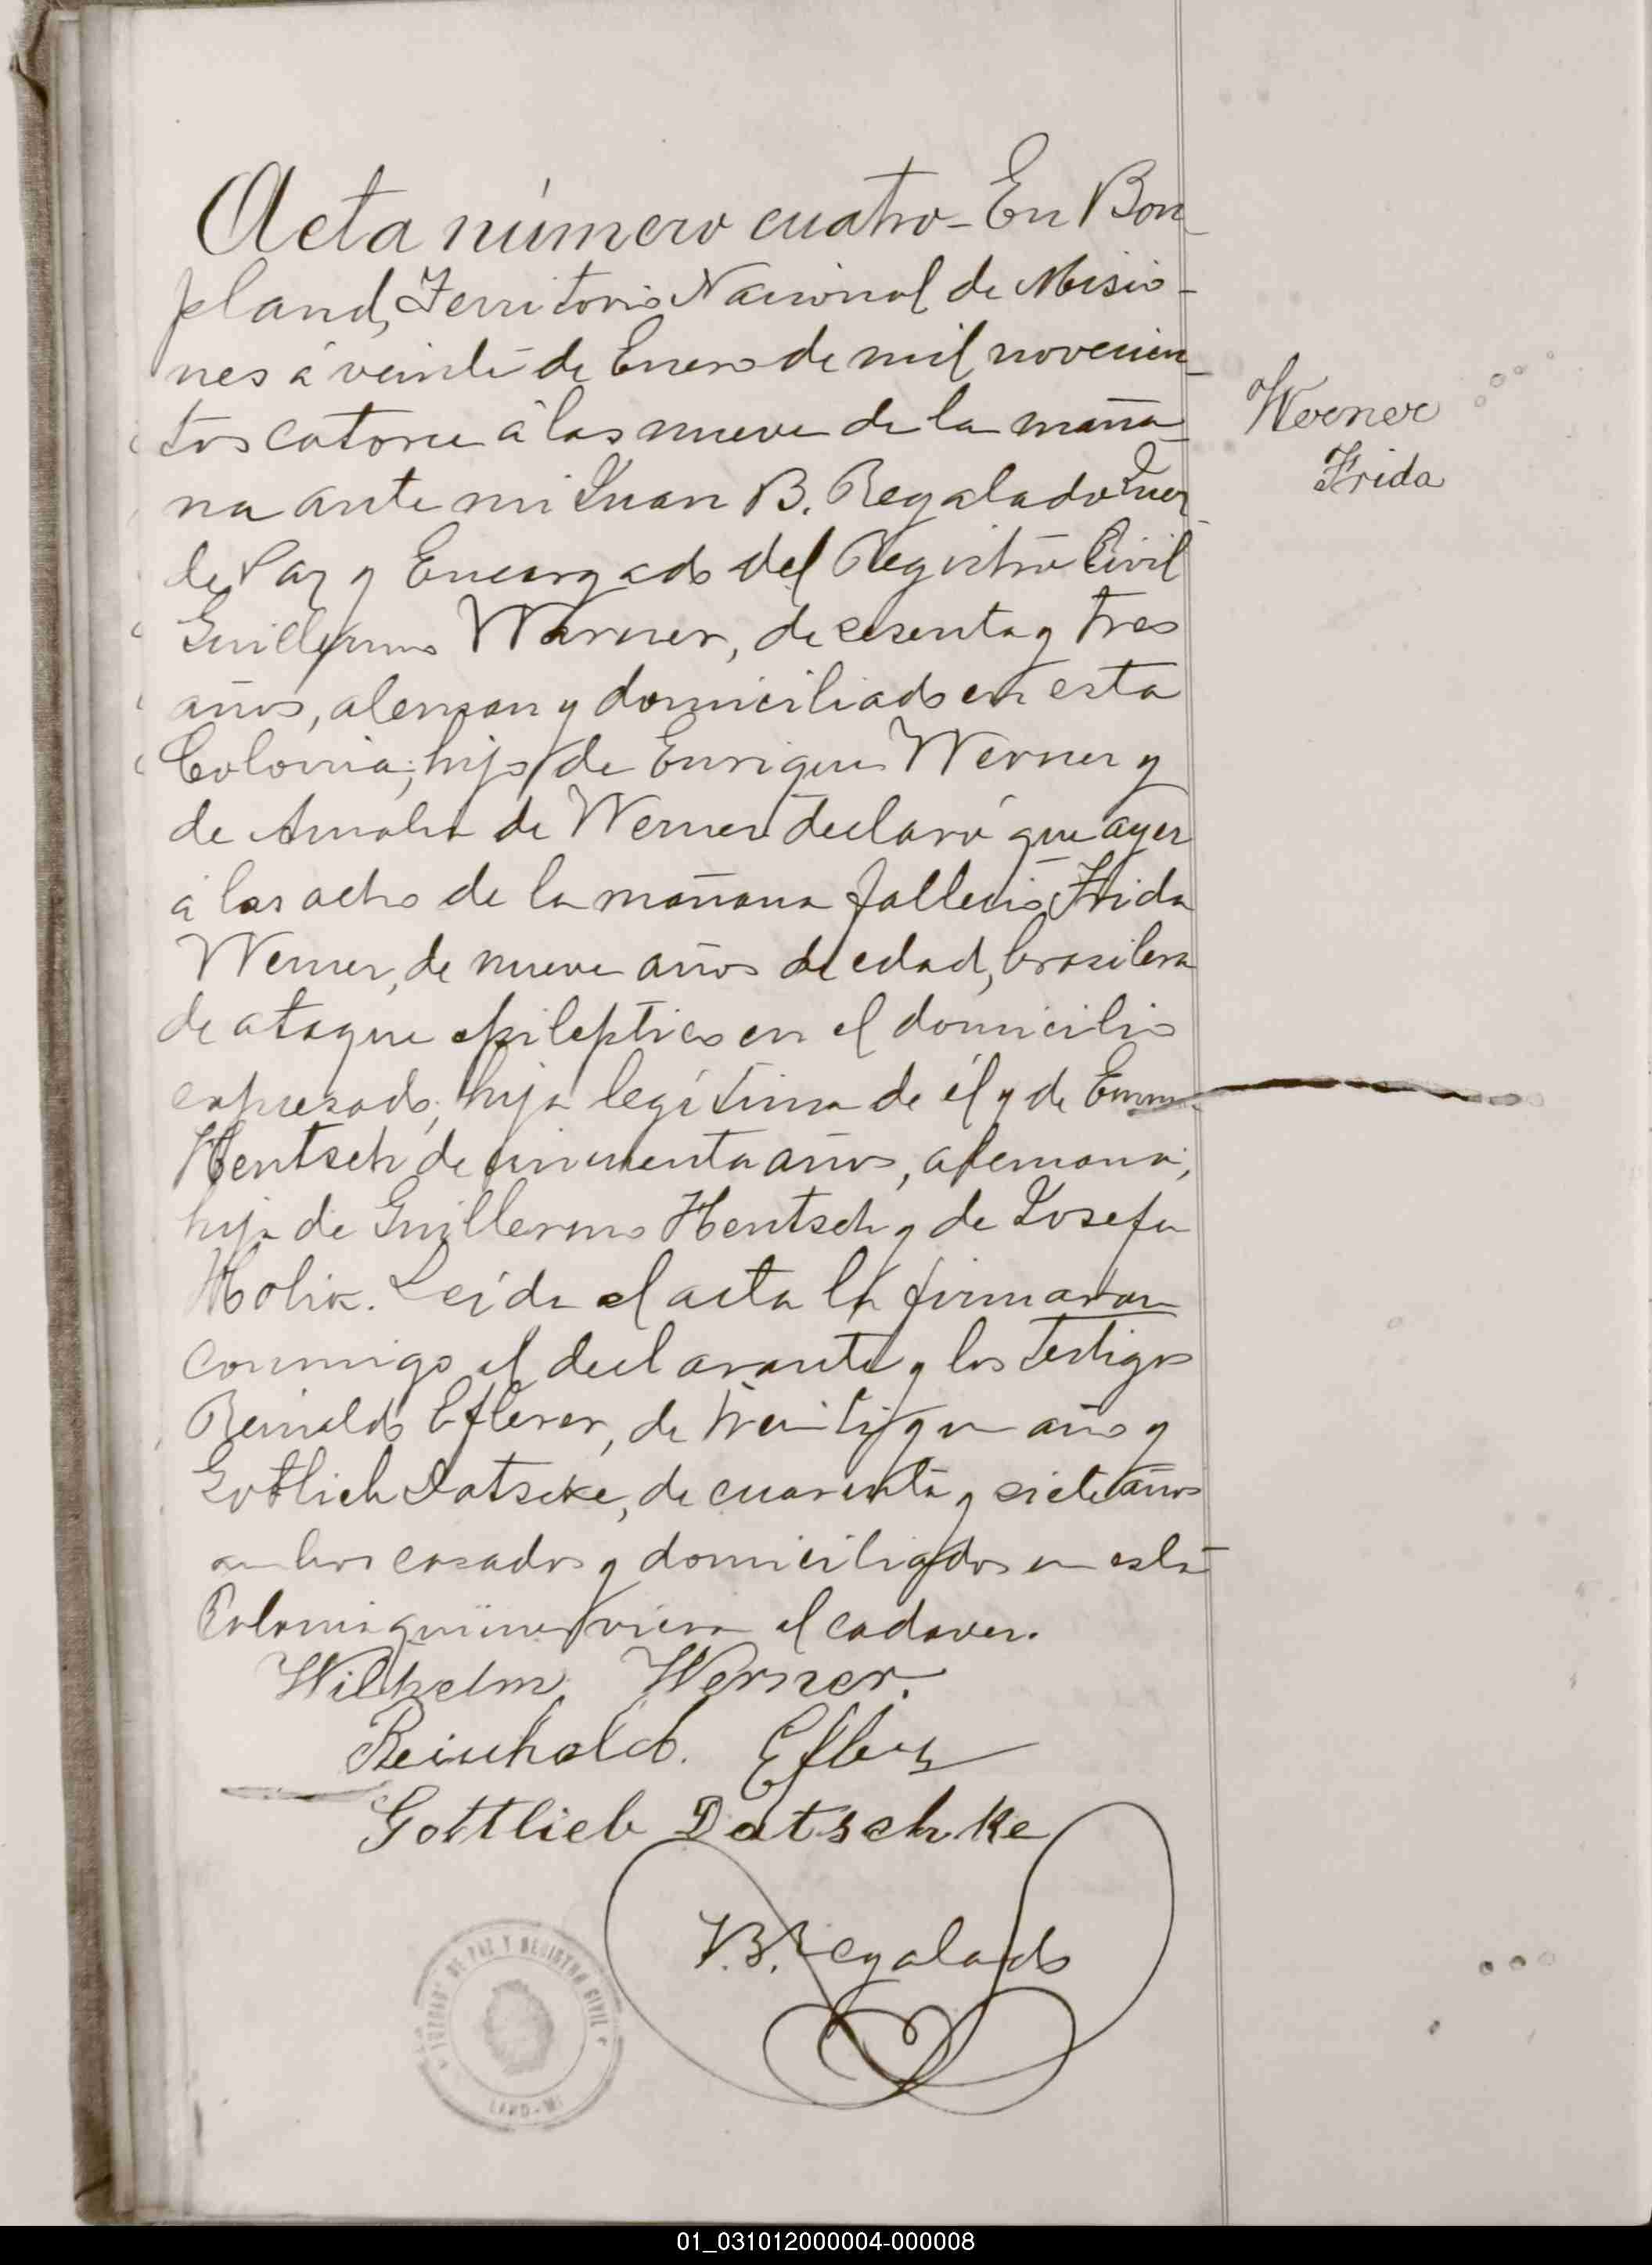 Acta número cuatro - En Bon-
pland, Territorio Nacional de Misio-
nes á veinte de Enero de mil novecien-
tos catorce á las nueve de la maña-
na ante mi Juan B. Regalado Juez
de Paz y Encargado del Registro Civil
Guillermo Warner, de sesenta y tres
años, aleman y domiciliado en esta
Colonia; hijo de Enrique Werner y
de Amalia de Werner declaró que ayer
á las ocho de la mañana falleció Frida
Werner, de nueve años de edad, brasilera
de ataque epileptico en el domicilio
expresado; hija legítima de él y de Emma
Hentsch de cincuenta años, alemana;
hija de Guillermo Hentsch y de Josefa
Leida el acta la firmaron
conmigo el declarante y los testigos
Reinaldo Eflerer, de treinta y un año y
Gotlieb Datscke, de cuarenta y siete años
ambos casados y domiciliados en esta
Colonia quienes vieron el cadaver.
Wilhelm Werner.
Reinhold. Efler
Gottlieb Datschke
J.B. Regalado
Werner
Frida
JUZGADO DE PAZ Y REGISTRO CIVIL
LAND-MI
01_031012000004-000008